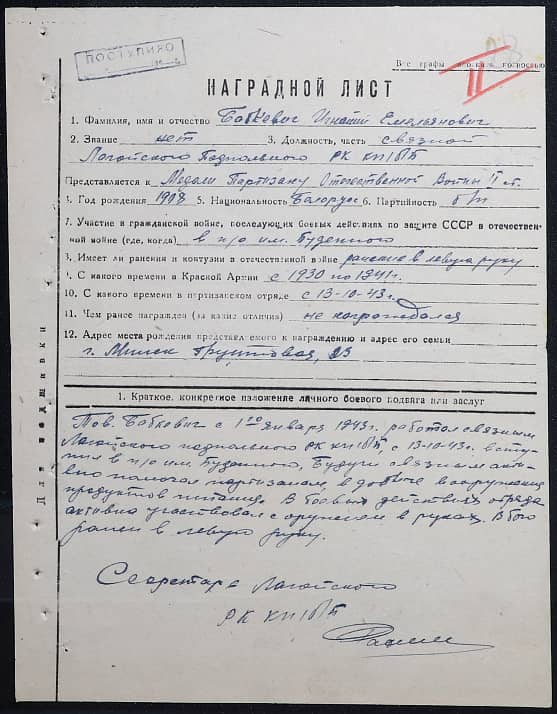 ПОСТУПИЛО
Все графы
НАГРАДНОЙ ЛИСТ
1. Фамилия, имя и отчество Бобкевич Игнатий Емельянович
2. Звание нет 3. Должность, часть связной
Логойского Подпольного РК КП(б)Б
Представляется к Медали Партизану Отечественной Войны II ст.
4. Год рождения 1908 5. Национальность Белорус 6. Партийность б/п
7. Участие в гражданской войне, последующих боевых действиях по защите СССР в отечествен-
ной войне (где, когда) в п/о им. Буденного
8. Имеет ли ранения и контузии в отечественной войне ранение в левую руку
9. С какого времени в Красной Армии с 1930 по 1941 г.
10. С какого времени в партизанском отряде с 13-10-43 г.
11. Чем ранее награжден (за какие отличия) не награждался
12. Адрес места рождения представляемого к награждению и адрес его семьи
г. Минск Грунтовая, 23
1. Краткое, конкретное изложение личного боевого подвига или заслуг
Тов. Бобкевич с 1го января 1943 г. работал связным
Логойского подпольного РК КП(б)Б, с 13-10-43 г. всту-
пил в п/о им. Буденного, Будучи связным акти-
вно помогал партизанам, в добыче вооружения
продуктов питания. В боевых действиях отряда
активно участвовал с оружием в руках. В бою
ранен в левую руку.
Секретарь Логойского
РК КП(б)Б
Для подшивки